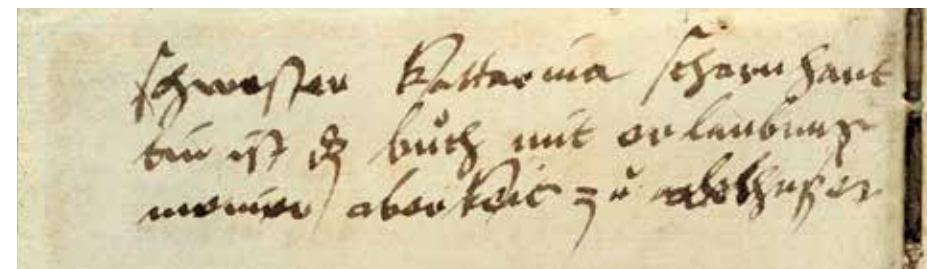 schwester Kattarina scharnhant
tin ist dz bůch mit erlaubung
meiner oberkeit zů adelhusen